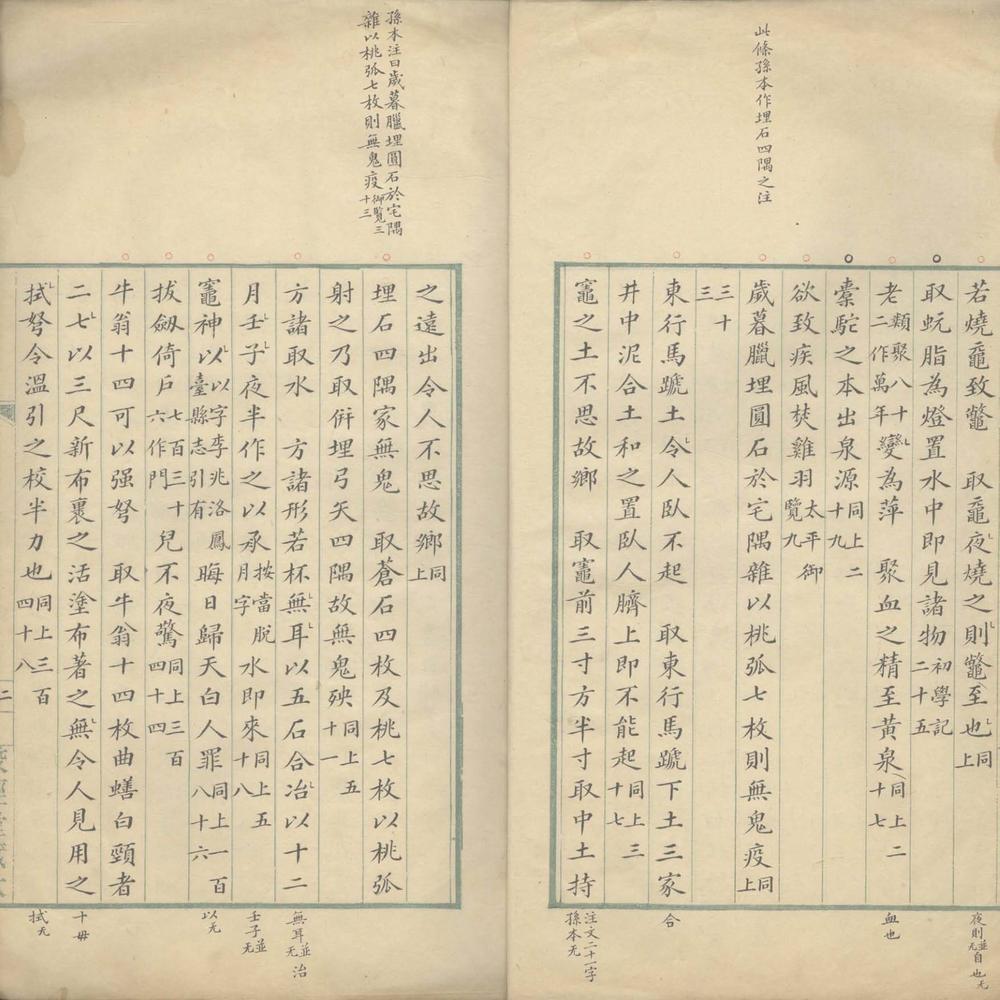 此條孫本作埋石四隅之注
若燒黿致鼈　取黿夜燒之則鼈至也同上
取蚖脂為燈置水中即見諸物初學記二十五
老類聚八十二作萬年變為萍　聚血之精至黃泉同上二十七
橐駝之本出泉源同上二十九
欲致疾風焚雞羽太平御覽九
歲暮臘埋圓石於宅隅雜以桃弧七枚則無鬼疫同上
三十三
東行馬蹏土令人臥不起　取東行馬蹏下土三家
井中泥合土和之置臥人臍上即不能起同上三十七
竈之土不思故鄉　取竈前三寸方半寸取中土持
夜則並无自也无
血也
合
注文二十一字孫本无
孫本注曰歲暮臘埋圓石於宅隅
雜以桃弧七枚則無鬼疫御覽三十三
之遠出令人不思故鄉同上
埋石四隅家無鬼　取蒼石四枚及桃七枚以桃弧
射之乃取併埋弓矢四隅故無鬼殃同上五十一
方諸取水　方諸形若杯無耳以五石合冶以十二
月壬子夜半作之以承按當脫月字水即來同上五十八
竈神以以字李兆洛鳳臺縣志引有晦日歸天白人罪同上一百八十六
拔劔倚戶七百三十六作門兒不夜驚同上三百四十四
牛翁十四可以强弩　取牛翁十四枚曲蟮白頸者
二七以三尺新布裹之活塗布著之無令人見用之
拭弩令溫引之校半力也同上三百四十八
二
無耳並无　治
壬子並无
以无
十毋
拭无